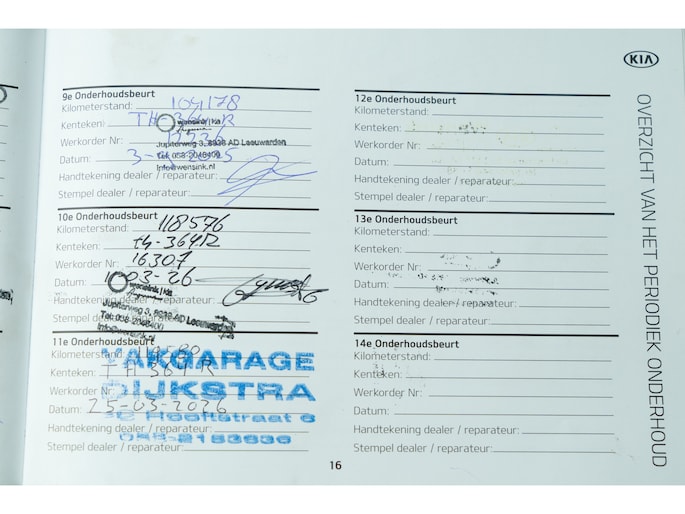 KIA
OVERZICHT VAN HET PERIODIEK ONDERHOUD
9e Onderhoudsbeurt
Kilometerstand: 104178
Kenteken: TH 364 R
wensink | kia
Werkorder Nr:
Jupiterweg 3, 8938 AD Leeuwarden
Datum: 3-
Info@wensink.nl
Handtekening dealer / reparateur:
Stempel dealer / reparateur:
10e Onderhoudsbeurt
Kilometerstand: 118576
Kenteken: th-364R
Werkorder Nr: 16307
Datum: 03-26
wensink | kia
Handtekening dealer / reparateur:
Jupiterweg 3, 8938 AD Leeuwarden
Stempel dealer / reparateur:
Info@wensink.nl
11e Onderhoudsbeurt
Kilometerstand:
VAKGARAGE
Kenteken: TH 364 R
Werkorder Nr:
DIJKSTRA
Datum: 25-03-2026
Handtekening dealer / reparateur:
Stempel dealer / reparateur:
12e Onderhoudsbeurt
Kilometerstand:
Kenteken:
Werkorder Nr:
Datum:
Handtekening dealer / reparateur:
Stempel dealer / reparateur:
13e Onderhoudsbeurt
Kilometerstand:
Kenteken:
Werkorder Nr:
Datum:
Handtekening dealer / reparateur:
Stempel dealer / reparateur:
14e Onderhoudsbeurt
Kilometerstand:
Kenteken:
Werkorder Nr:
Datum:
Handtekening dealer / reparateur:
Stempel dealer / reparateur:
16